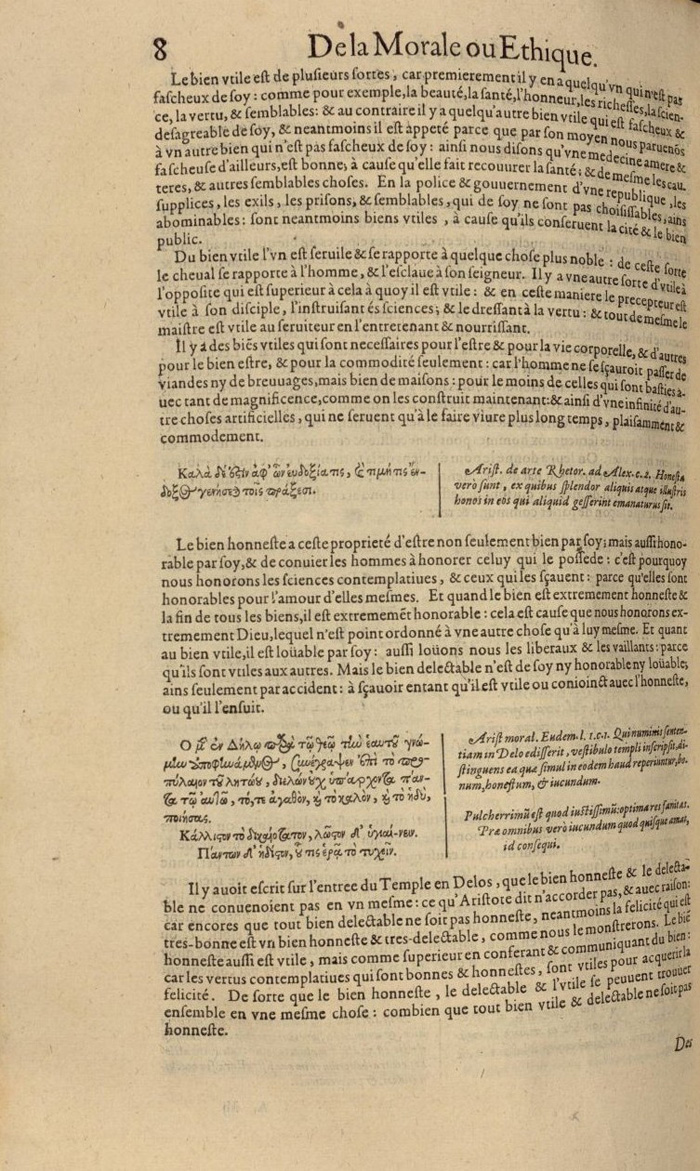 8 De la Morale ou Ethique.
Le bien vtile est de plusieurs sortes, car premierement il y en a quelqu'vn qui n'est pas
fascheux de soy : comme pour exemple, la beauté, la santé, l'honneur, les richesses, la scien-
ce, la vertu, & semblables: & au contraire il y a quelqu'autre bien vtile qui est fascheux &
desagreable de soy, & neantmoins il est appeté parce que par son moyen nous paruenõs
à vn autre bien qui n'est pas fascheux de soy : ainsi nous disons qu'vne medecine amere &
fascheuse d'ailleurs, est bonne, à cause qu'elle fait recouurer la santé; & de mesme les cau-
teres, & autres semblables choses. En la police & gouuernement d'vne republique, les
supplices, les exils, les prisons, & semblables, qui de soy ne sont pas choisissables, ains
abominables : sont neantmoins biens vtiles , à cause qu'ils conseruent la cité & le bien
public.
Du bien vtile l'vn est seruile & se rapporte à quelque chose plus noble : de ceste sorte
le cheual se rapporte à l'homme, & l'esclaue à son seigneur. Il y a vne autre sorte d'vtile à
l'opposite qui est superieur à cela à quoy il est vtile : & en ceste maniere le precepteur est
vtile à son disciple, l'instruisant és sciences; & le dressant à la vertu : & tout de mesme le
maistre est vtile au seruiteur en l'entretenant & nourrissant.
Il y a des biẽs vtiles qui sont necessaires pour l'estre & pour la vie corporelle, & d'autres
pour le bien estre, & pour la commodité seulement : car l'homme ne se sçauroit passer de
viandes ny de breuuages, mais bien de maisons : pour le moins de celles qui sont basties a-
uec tant de magnificence, comme on les construit maintenant: & ainsi d'vne infinité d'au-
tre choses artificielles, qui ne seruent qu'à le faire viure plus long temps, plaisamment &
commodement.
Καλὰ δέ ἐστιν ἀφ' ὧν εὐδοξία τις, ἢ τιμή τις ἔν-
δοξος γενήσεται τοῖς πράξεσι.
Arist. de arte Rhetor. ad Alex. c. 2. Honesta
verò sunt, ex quibus splendor aliquis atque illustris
honos in eos qui aliquid gesserint emanaturus sit.
Le bien honneste a ceste proprieté d'estre non seulement bien par soy; mais aussi hono-
rable par soy, & de conuier les hommes à honorer celuy qui le possede : c'est pourquoy
nous honorons les sciences contemplatiues, & ceux qui les sçauent : parce qu'elles sont
honorables pour l'amour d'elles mesmes. Et quand le bien est extremement honneste &
la fin de tous les biens, il est extrememẽt honorable : cela est cause que nous honorons ex-
tremement Dieu, lequel n'est point ordonné à vne autre chose qu'à luy mesme. Et quant
au bien vtile, il est loüable par soy : aussi loüons nous les liberaux & les vaillants : parce
qu'ils sont vtiles aux autres. Mais le bien delectable n'est de soy ny honorable ny loüable,
ains seulement par accident : à sçauoir entant qu'il est vtile ou conioinct auec l'honneste,
ou qu'il l'ensuit.
Ὁ μὲν ἐν Δήλῳ παρὰ τῷ θεῷ τὴν ἑαυτοῦ γνώ-
μην ἀποφηνάμενος, συνέγραψεν ἐπὶ τὸ προ-
πύλαιον τοῦ λητῴου, διελὼν οὐχ ὑπάρχοντα πάν-
τα τῷ αὐτῷ, τό, τε ἀγαθὸν, ϗ τὸ καλὸν, ϗ τὸ ἡδύ,
ποιήσας.
Κάλλιστον τὸ δικαιότατον, λῷστον δ' ὑγιαί-νειν.
Πάντων δ' ἥδιστον, οὗ τις ἐρᾷ τὸ τυχεῖν.
Arist moral. Eudem. l. 1. c. 1. Qui numinis senten-
tiam in Delo edisserit, vestibulo templi inscripsit, di-
stinguens ea qua simul in eodem haud reperiuntur, bo-
num, honestum, & iucundum.
Pulcherrimũ est quod iustissimũ: optima res sanitas.
Præ omnibus verò iucundum quod quisque amat,
id consequi.
Il y auoit escrit sur l'entree du Temple en Delos, que le bien honneste & le delecta-
ble ne conuenoient pas en vn mesme : ce qu'Aristote dit n'accorder pas, & auec raison:
car encores que tout bien delectable ne soit pas honneste, neantmoins la felicité qui est
tres-bonne est vn bien honneste & tres-delectable, comme nous le monstrerons. Le biẽ
honneste aussi est vtile, mais comme superieur en conferant & communiquant du bien :
car les vertus contemplatiues qui sont bonnes & honnestes, sont vtiles pour acquerir la
felicité. De sorte que le bien honneste, le delectable & l'vtile se peuuent trouuer
ensemble en vne mesme chose : combien que tout bien vtile & delectable ne soit pas
honneste.
Des